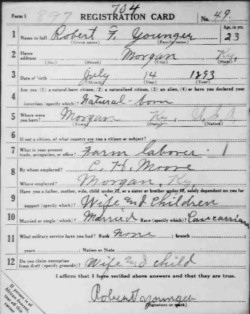 Form 1 897 704 REGISTRATION CARD No. 49
1 Name in full Robert F. Younger Age, in yrs. 23
2 Home address Morgan Ky.
3 Date of birth July 14 1893
4 Are you (1) a natural-born citizen, (2) a naturalized citizen, (3) an alien, (4) or have you declared your intention (specify which)? Natural-born
5 Where were you born? Morgan Ky, U.S.A
6 If not a citizen, of what country are you a citizen or subject?
7 What is your present trade, occupation, or office? Farm laborer 1
8 By whom employed? C. H. Moore
Where employed? Morgan, Ky
9 Have you a father, mother, wife, child under 12, or a sister or brother under 12, solely dependent on you for support (specify which)? Wife and Children
10 Married or single (which)? Married Race (specify which)? Caucasian
11 What military service have you had? Rank None ; branch
years Nation or State
12 Do you claim exemption from draft (specify grounds)? Wife and child
I affirm that I have verified above answers and that they are true.
Robert Younger